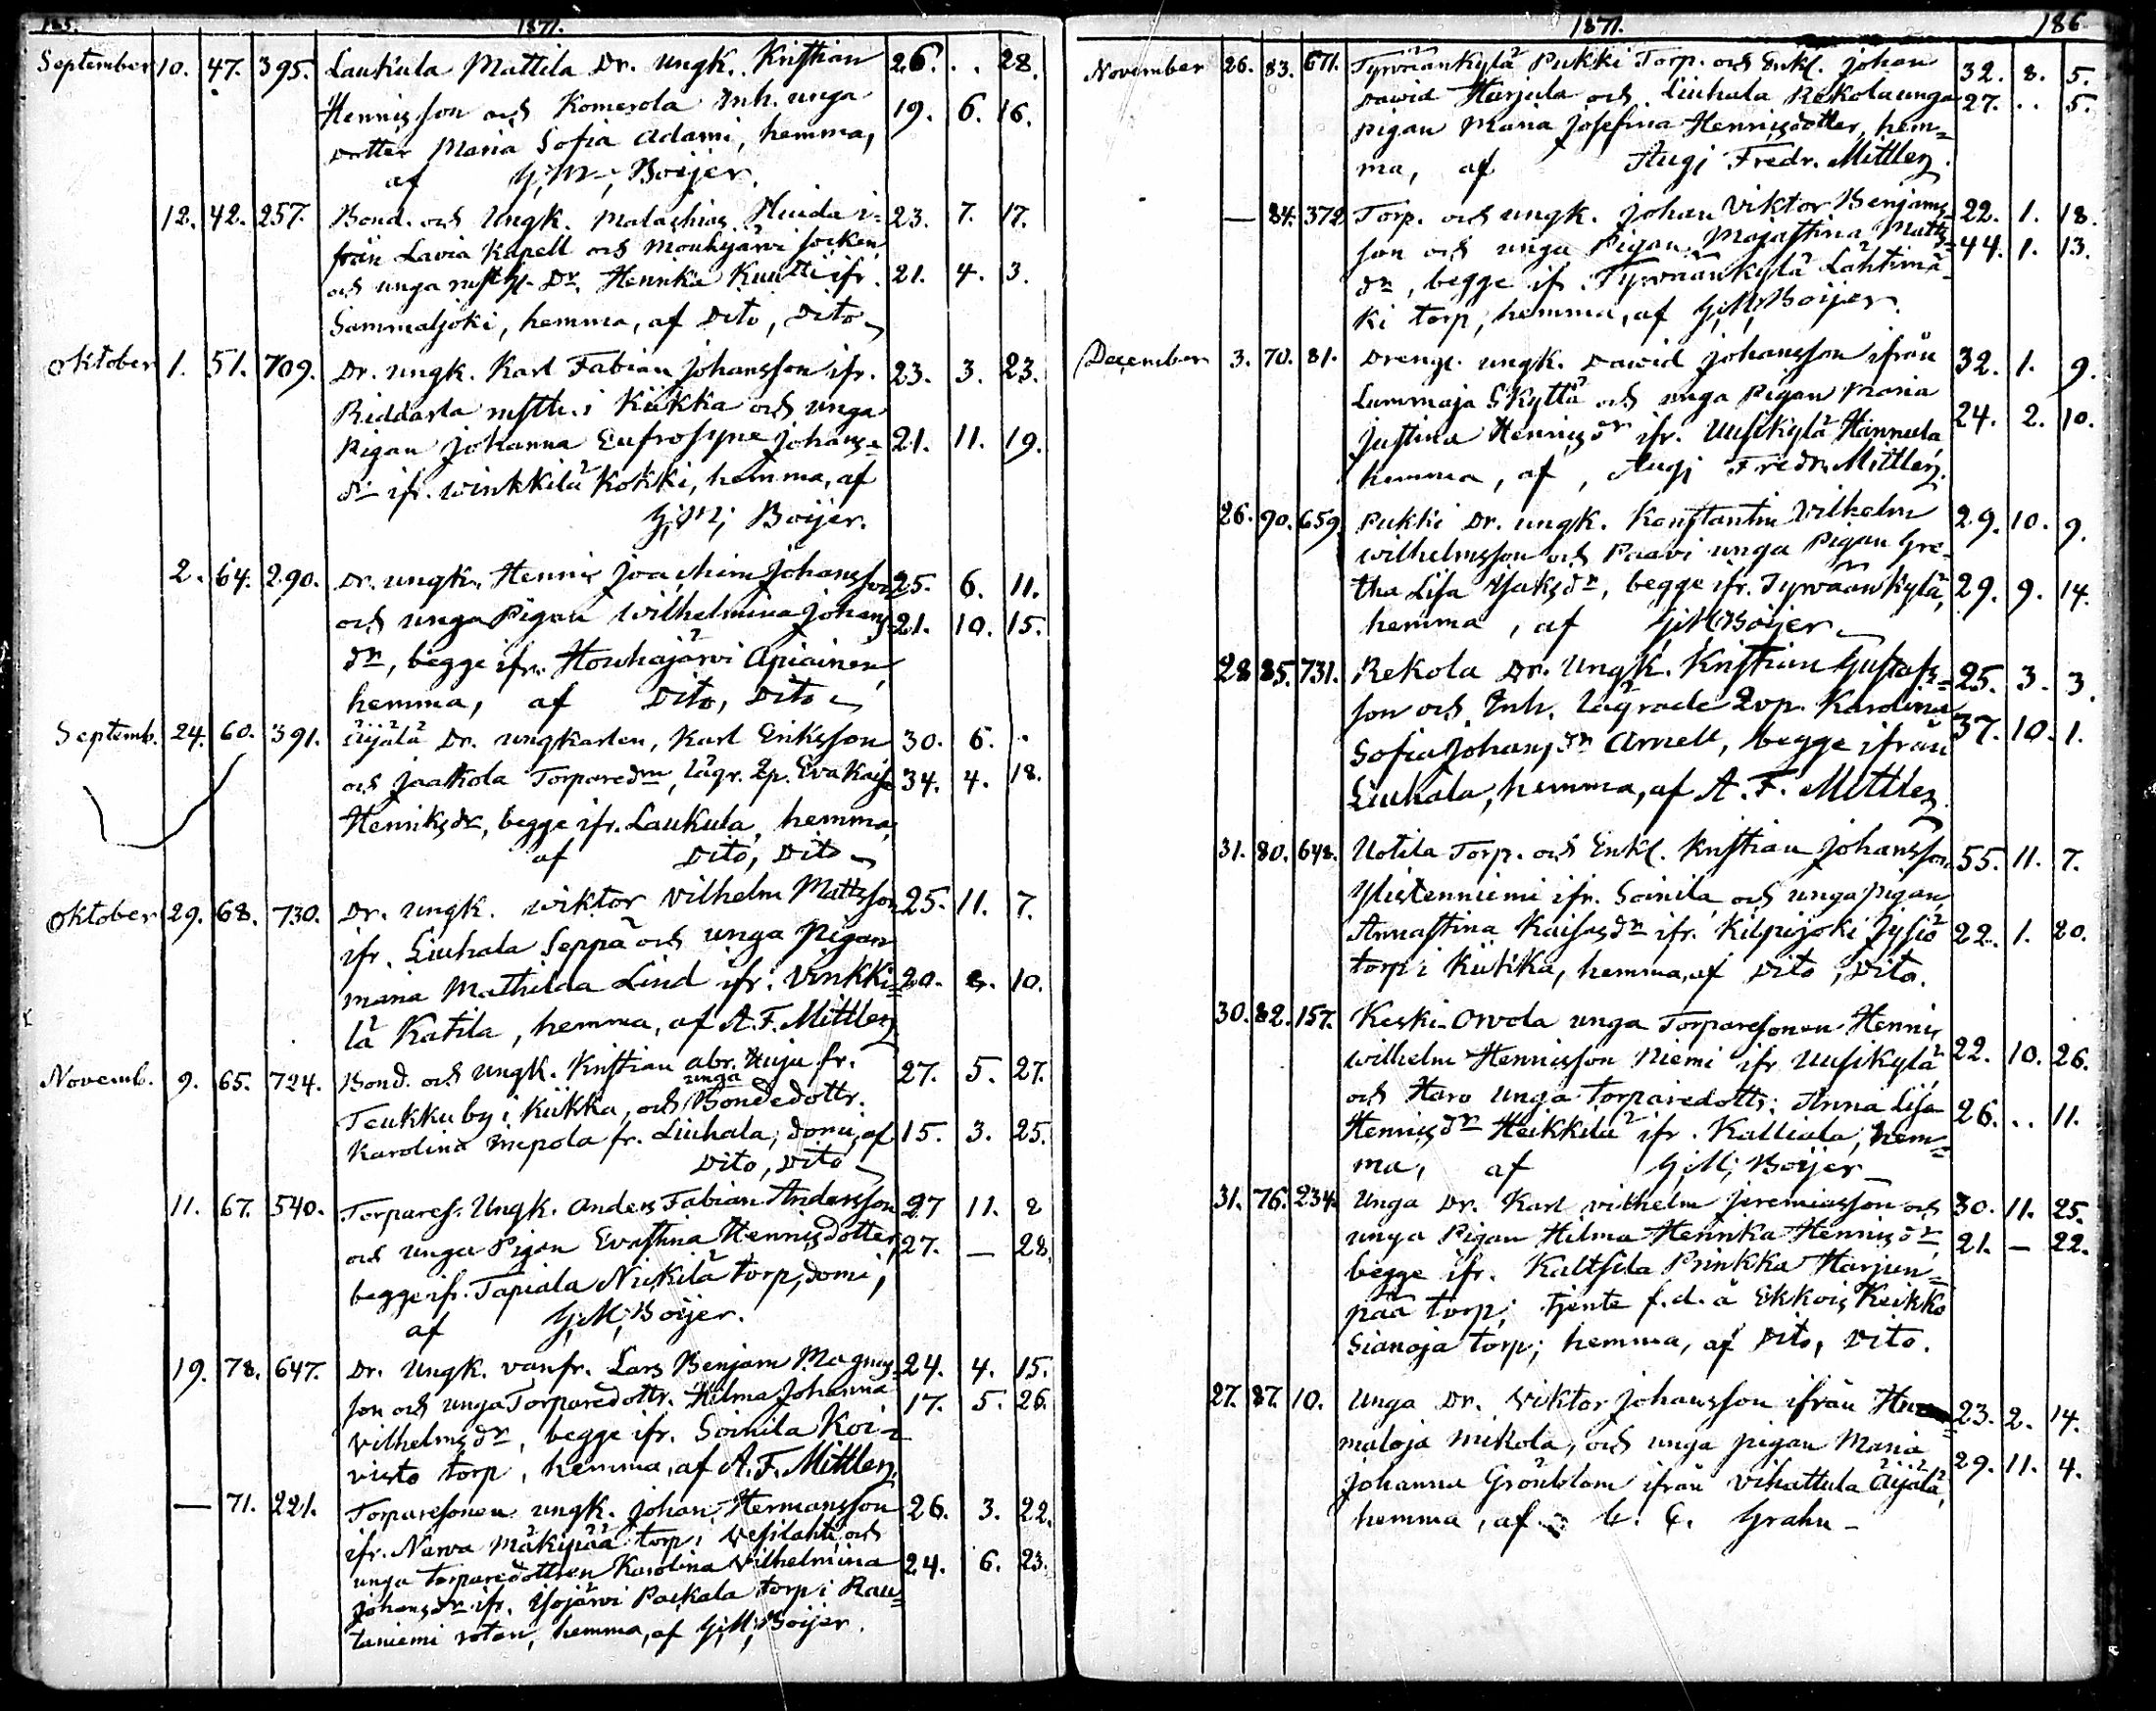 185. 1871.
September 10. 47. 395. Laukula Mattila Dr. ungk. Kristian 26. . . 28.
Hennisson och Komerola Inh. unga 19. 6. 16.
dotter Maria Sofia Adami, hemma,
af G; M; Boijer.
12. 42. 257. Bond. och Ungk. Malachias Huida i- 23. 7. 17.
från Lavia Kapell och Mouhijärvi socken
och unga Dr. Hennka Kuutti ifr. 21. 4. 3.
Sammaljoki, hemma, af Dito, Dito
Oktober 1. 51. 709. Dr. ungk. Karl Fabian Johansson ifr. 23. 3. 23.
Riddarla rusth. i Kiikka och unga
Pigan Johanna Eufrosyne Johans= 21. 11. 19.
dr ifr. Winkkilä Kokki, hemma, af
G; M; Boijer.
2. 64. 290. Dr. ungk. Hennis Joachim Johansson 25. 6. 11.
och unga Pigan Wilhelmina Johans 21. 10. 15.
dr, begge ifr. Houhajärvi Apiainen,
hemma, af Dito, Dito
Septemb. 24. 60. 391. Äijälä Dr. ungkarlen, Karl Eriksson 30. 6. .
och Jaakola Torparedr, lägr. 2p. Eva Kaisa 34. 4. 18.
Henriksdr, begge ifr. Laukula, hemma,
af Dito, Dito
Oktober 29. 68. 730. Dr. ungk. Wiktor Vilhelm Mattsson 25. 11. 7.
ifr. Liuhala Seppä och unga Pigan
Maria Mathilda Lind ifr. Vinkki= 20. 10.
lä Katila, hemma, af A. F. Mittler
Novemb. 9. 65. 724. Bond. och ungk. Kristian Abr. Huju fr. 27. 5. 27.
Teukku by i Kiikka, och unga Bondedottr.
Karolina Knepola fr. Liuhala, domi, af 15. 3. 25.
Dito, Dito
11. 67. 540. Torpares. Ungk. Anders Fabian Andersson 27 11. 2
och unga Pigan Evastina Hennisdotter, 27. — 28.
begge ifr. Tapiala Nickilä torp, domi,
af G; M; Boijer.
19. 78. 647. Dr. Ungk. vanfr. Lars Benjam Magnus 24. 4. 15.
son och unga Torparedottr. Hilma Johanna 17. 5. 26.
Vilhelmsdr, begge ifr. Soinila Koi-
visto torp, hemma, af A. F. Mittler,
— 71. 221. Torparesonen ungk. Johan Hermansson 26. 3. 22.
ifr. Narva Mäkipää torp i Vesilahti, och
unga torparedottren Karolina Vilhelmina 24. 6. 23.
Johansdr ifr. Isojärvi Paskala torp i Rau=
taniemi roten, hemma, af G; M; Boijer.
1871. 186
November 26. 83. 671. Tyrväänkylä Pukki Torp. och Enkl. Johan 32. 8. 5.
Dawid Harjula och Liuhala Rekola unga 27. . . 5.
pigan Maria Josefina Hennisdotter, hem=
ma, af Augj Fredr. Mittler.
— 84. 372 Torp. och ungk. Johan Viktor Benjams= 22. 1. 18.
son och unga Pigan Majastina Matts= 44. 1. 13.
dr, begge if. Tyrväänkylä Lähtimä=
ki torp, hemma, af G; M; Boijer.
December 3. 70. 81. Dreng. ungk. Dawid Johansson ifrån 32. 1. 9.
Lummaja Skyttä och unga Pigan Maria
Justina Hennisdr ifr. Uusikylä Hannula 24. 2. 10.
hemma, af, Augj Fredr. Mittler.
26. 90. 659. Pukki Dr. ungk. Konstantin Vilhelm 29. 10. 9.
Wilhelmsson och Paavi unga Pigan Gre-
tha Lisa Isaksdr, begge ifr. Tyrväänkylä, 29. 9. 14.
hemma, af G; M; Boijer
28 85. 731. Rekola Dr. Ungk. Kristian Gustafs= 25. 3. 3.
son och Inh. lägrade 2op. Karolina
Sofia Johansdr Arnell, begge ifrån 37. 10. 1.
Liuhala, hemma, af A. F. Mittler
31. 80. 648. Uotila Torp. och Enkl. Kristian Johansson 55. 11. 7.
Ylistenniemi ifr. Soinila, och unga pigan
Annastina Kaisasdr ifr. Kilpijoki Jysiö 22. 1. 20.
torp i Kiikka, hemma, af Dito, Dito.
30. 82. 157. Keski-Orvola unga Torparesonen Hennis
Wilhelm Hennisson Niemi ifr Uusikylä 22. 10. 26.
och Haro unga torparedottr: Anna Lisa
Hennisdr Heikkilä ifr. Kalliala, hem= 26. . . 11.
ma, af G; M; Boijer
31. 76. 234. Unga Dr. Karl Vilhelm Jeremiasson och 30. 11. 25.
unga Pigan Hilma Hennka Hennisdr, 21. — 22.
begge ifr. Kaltsila Prinkka Harjun=
pää torp; tjente f. d. å Ekkois Keikko
Sianoja torp; hemma, af Dito, Dito.
27. 87. 10. Unga Dr. Viktor Johansson ifrån Hu 23. 2. 14.
maloja Mikola, och unga pigan Maria
Johanna Grönblom ifrån Vihattula Äijälä, 29. 11. 4.
hemma, af C. C. Grahn